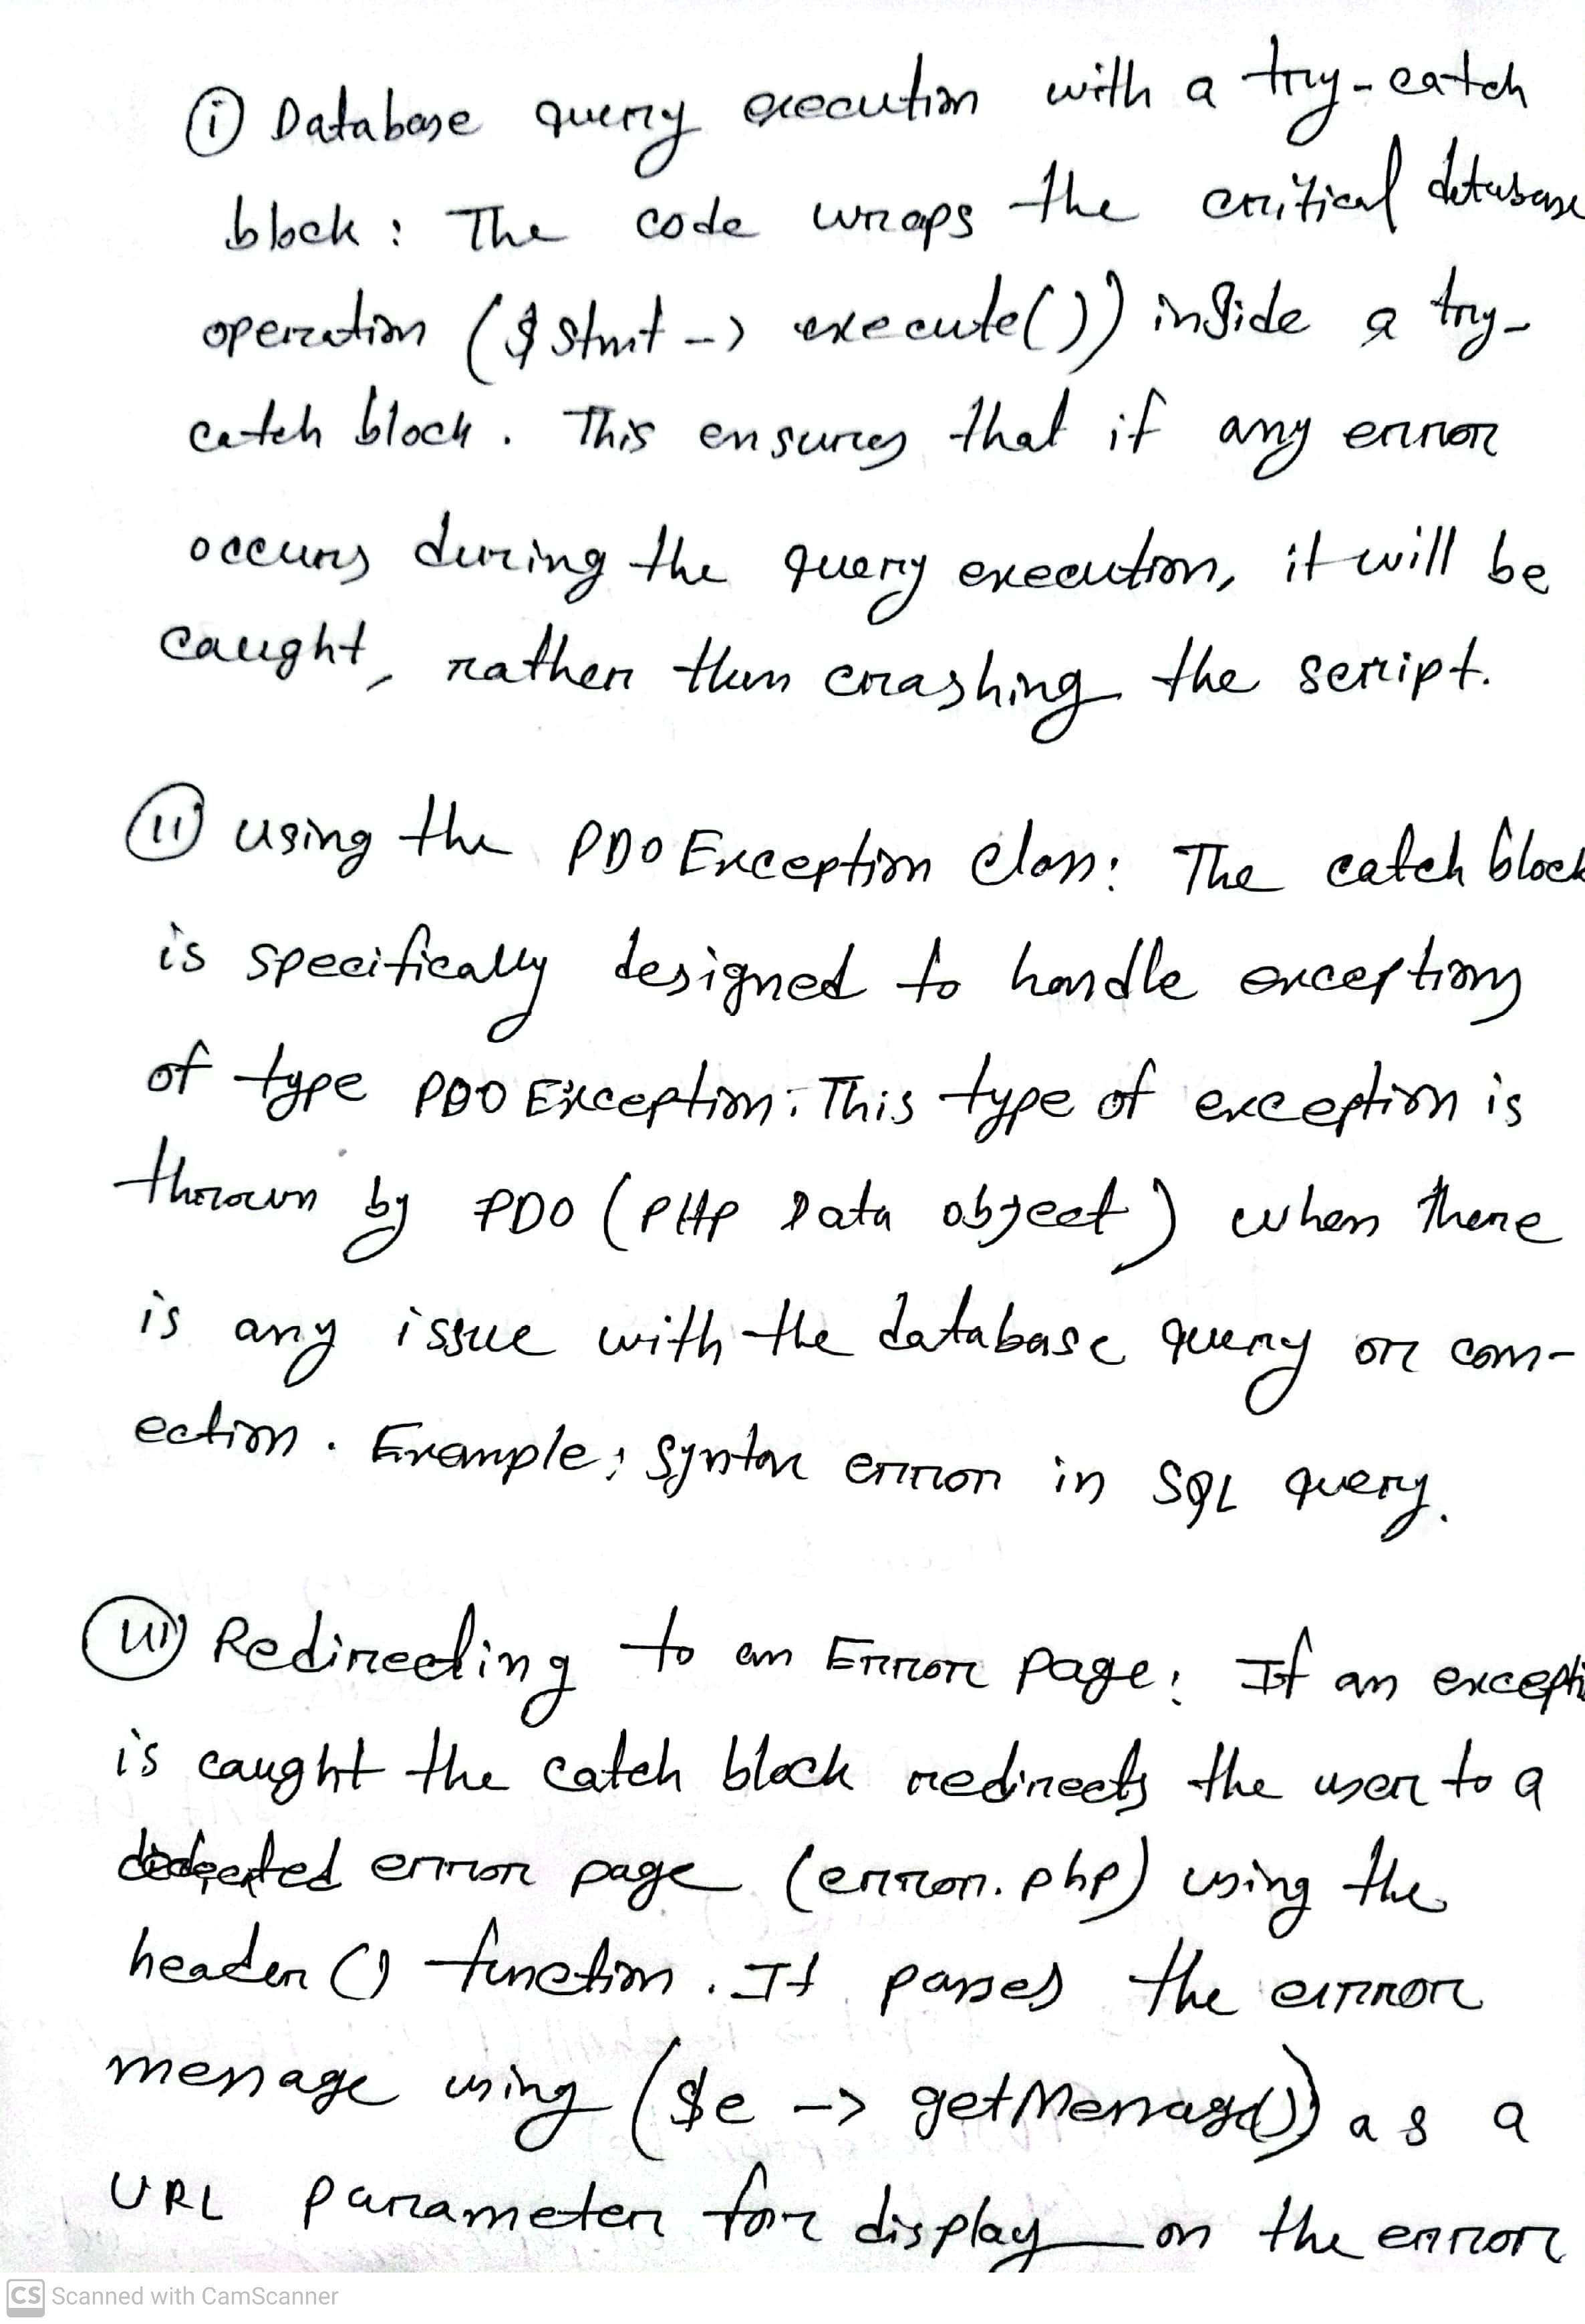 (i) Database query execution with a try-catch
block : The code wraps the critical database
operation ($stmt -> execute()) inside a try-
catch block. This ensures that if any error
occurs during the query execution, it will be
caught, rather than crashing the script.
(ii) Using the PDO Exception Class: The catch block
is specifically designed to handle exceptions
of type PDO Exception. This type of exception is
thrown by PDO (PHP Data object) when there
is any issue with the database query or conn-
ection. Example: Syntax error in SQL query.
(iii) Redirecting to an Error page: If an excepti
is caught the catch block redirects the user to a
error page (error.php) using the
header () function. It passes the error
message using ($e -> getMessage()) as a
URL parameter for display on the error
CS Scanned with CamScanner